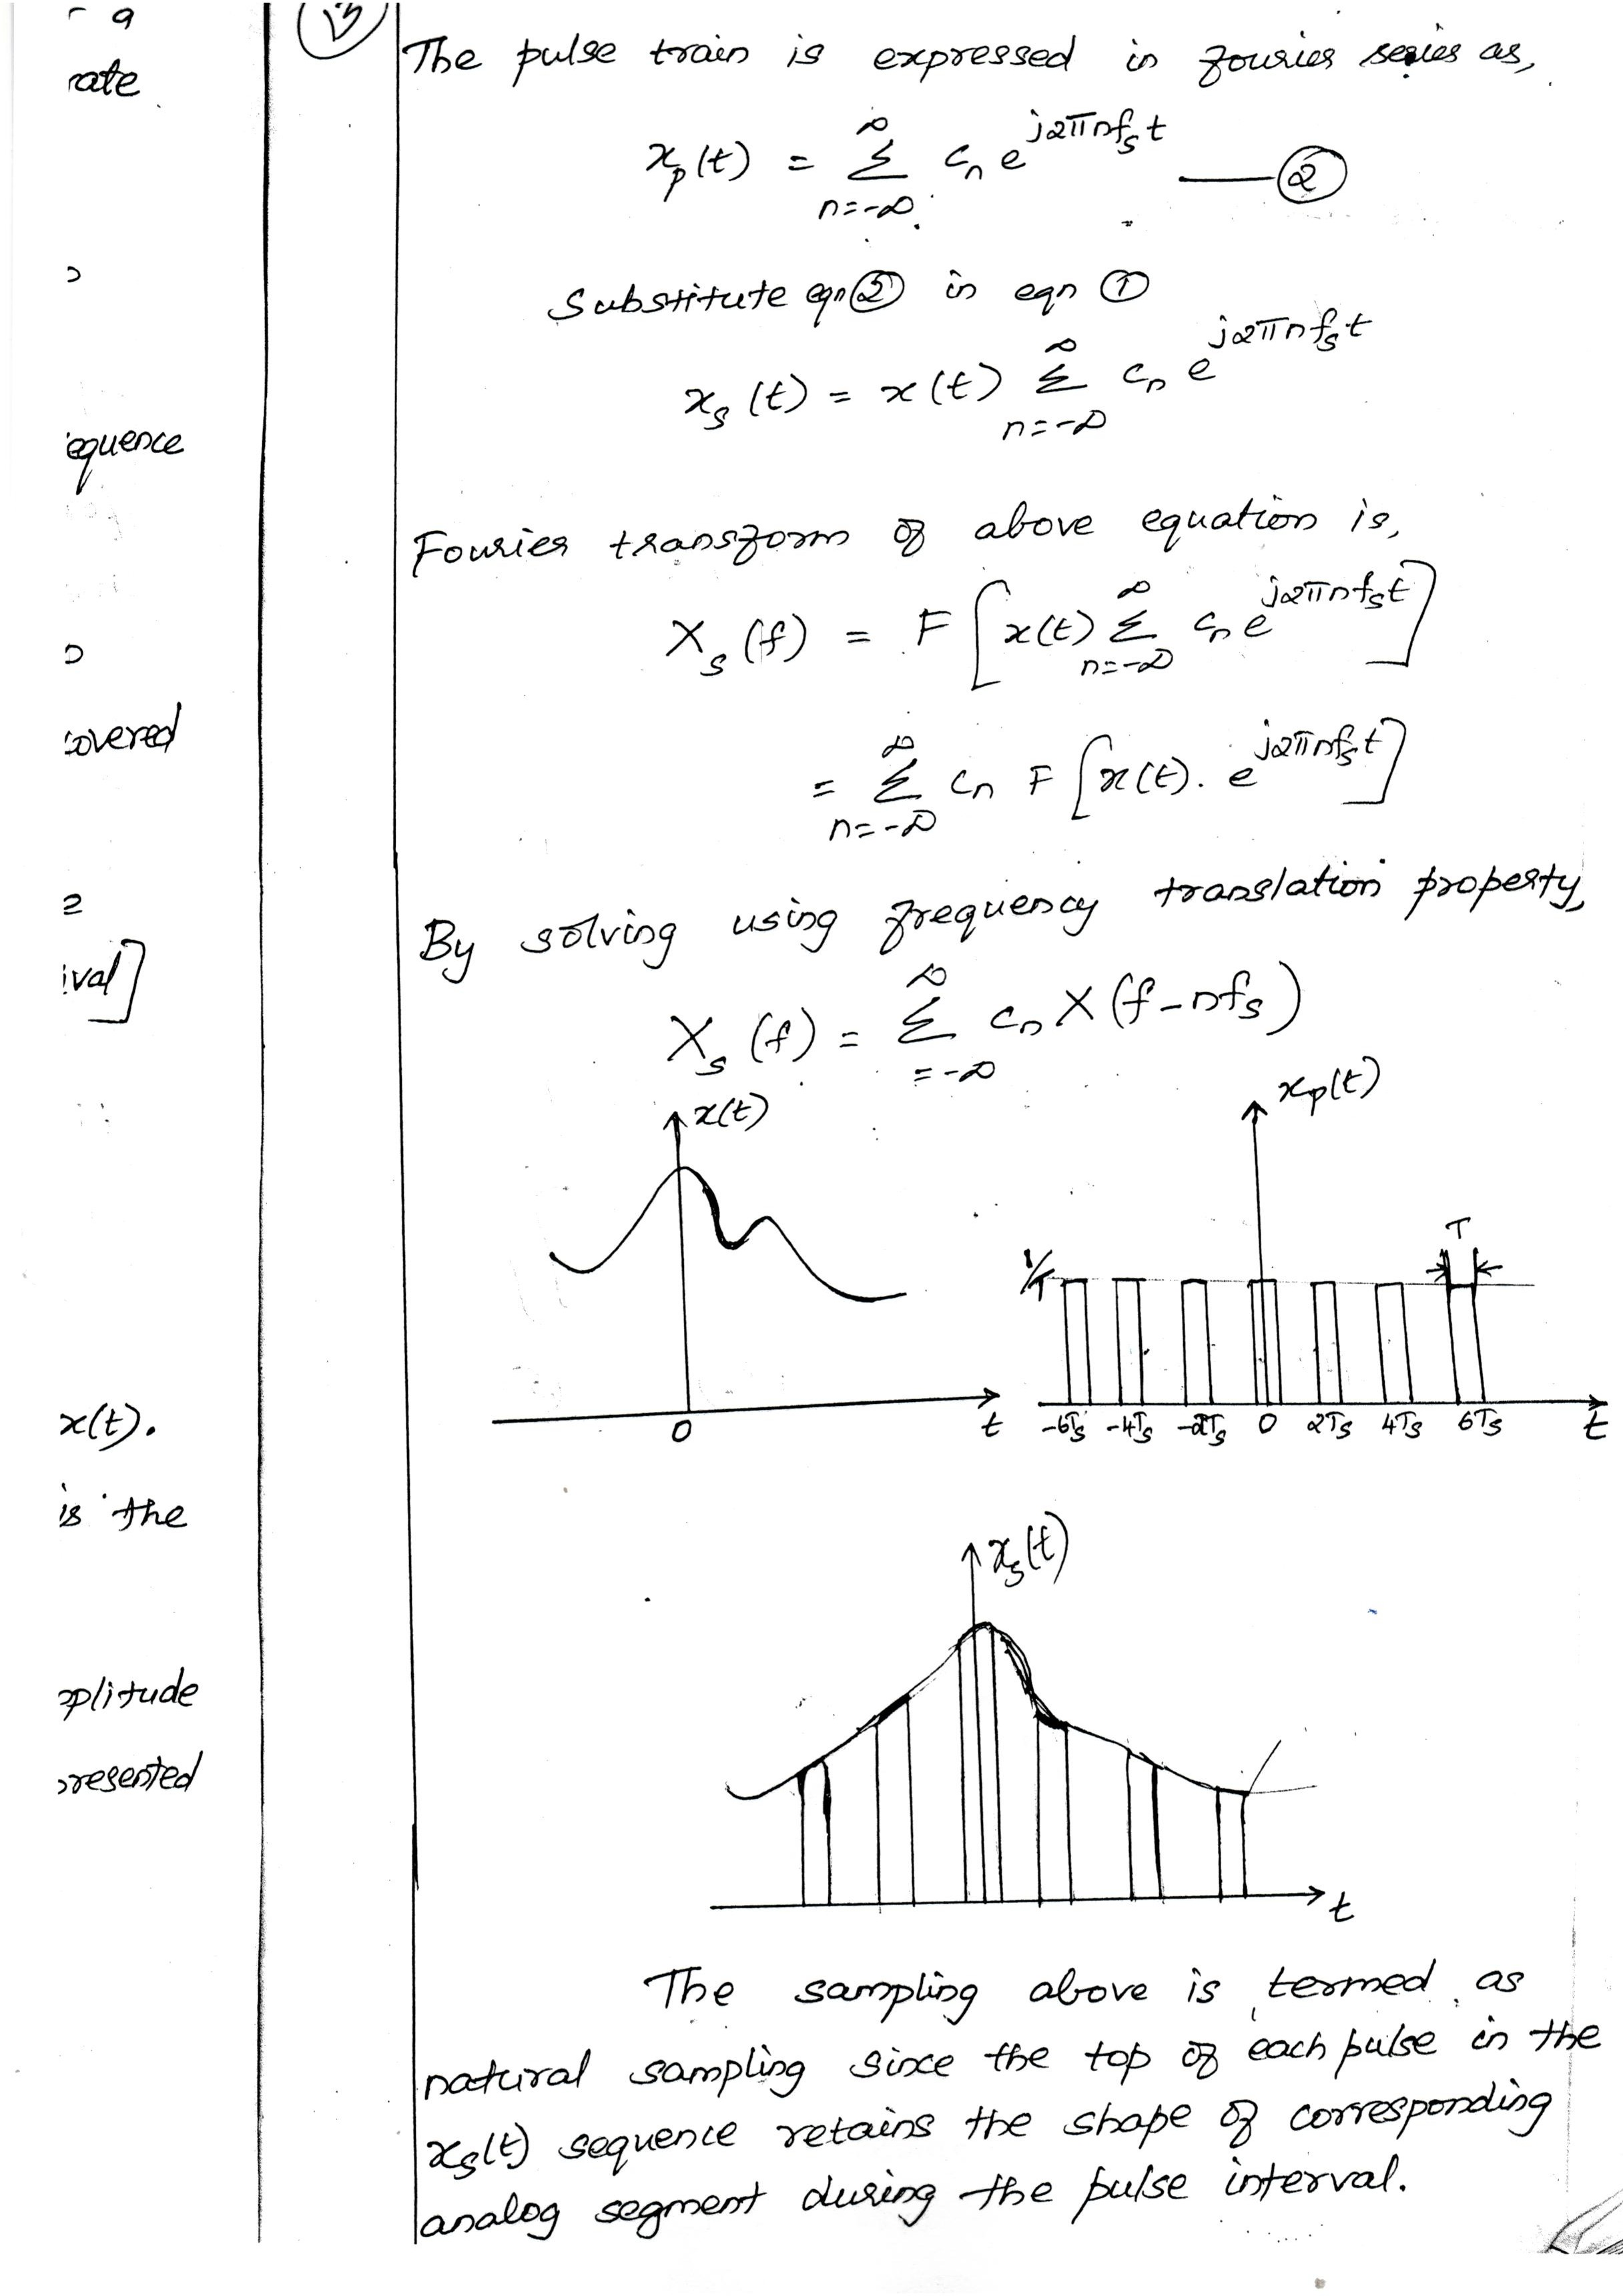 a
rate
equence
overed
2
ival]
x(t).
is the
plitude
resented
13
The pulse train is expressed in fourier series as,
x_p(t) = ∞ Σ n=-∞ c_n e^{j2πnf_s t} — ②
Substitute eqn② in eqn ①
x_s(t) = x(t) ∞ Σ n=-∞ c_n e^{j2πnf_s t}
Fourier transform of above equation is,
X_s(f) = F [x(t) ∞ Σ n=-∞ c_n e^{j2πnf_s t}]
= ∞ Σ n=-∞ c_n F [x(t). e^{j2πnf_s t}]
By solving using frequency translation property,
X_s(f) = ∞ Σ =-∞ c_n X(f-nf_s)
x(t)
0
t
x_p(t)
1/T
T
-6Ts -4Ts -2Ts 0 2Ts 4Ts 6Ts t
x_s(t)
t
The sampling above is termed as
natural sampling since the top of each pulse in the
x_s(t) sequence retains the shape of corresponding
analog segment during the pulse interval.